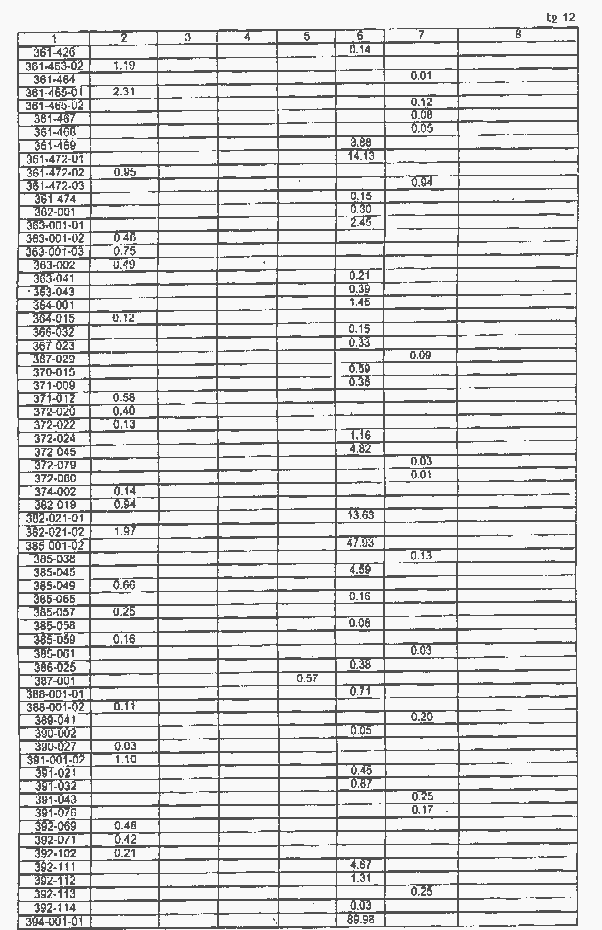 էջ 12
1 2 3 4 5 6 7 8
361-426 0.14
361-463-02 1.19
361-464 0.01
361-465-01 2.31
361-465-02 0.12
361-467 0.08
361-468 0.05
361-469 3.88
361-472-01 14.13
361-472-02 0.95
361-472-03 0.94
361 474 0.15
362-001 0.30
363-001-01 2.45
363-001-02 0.46
363-001-03 0.75
363-002 0.49
363-041 0.21
363-043 0.39
364-001 1.45
364-015 0.12
366-032 0.15
367 023 0.33
367-029 0.09
370-015 0.59
371-009 0.36
371-012 0.58
372-020 0.40
372-022 0.13
372-024 1.16
372 045 4.82
372-079 0.03
372-080 0.01
374-002 0.14
382 019 0.94
382-021-01 13.63
382-021-02 1.97
385 001-02 47.93
385-038 0.13
385-045 4.59
385-049 0.66
385-055 0.16
385-057 0.25
385-058 0.06
385-059 0.16
385-061 0.03
386-025 0.38
387-001 0.57
388-001-01 0.71
388-001-02 0.11
389-041 0.20
390-002 0.05
390-027 0.03
391-001-02 1.10
391-021 0.45
391-032 0.87
391-043 0.25
391-076 0.17
392-069 0.46
392-071 0.42
392-102 0.21
392-111 4.67
392-112 1.31
392-113 0.25
392-114 0.03
394-001-01 89.98